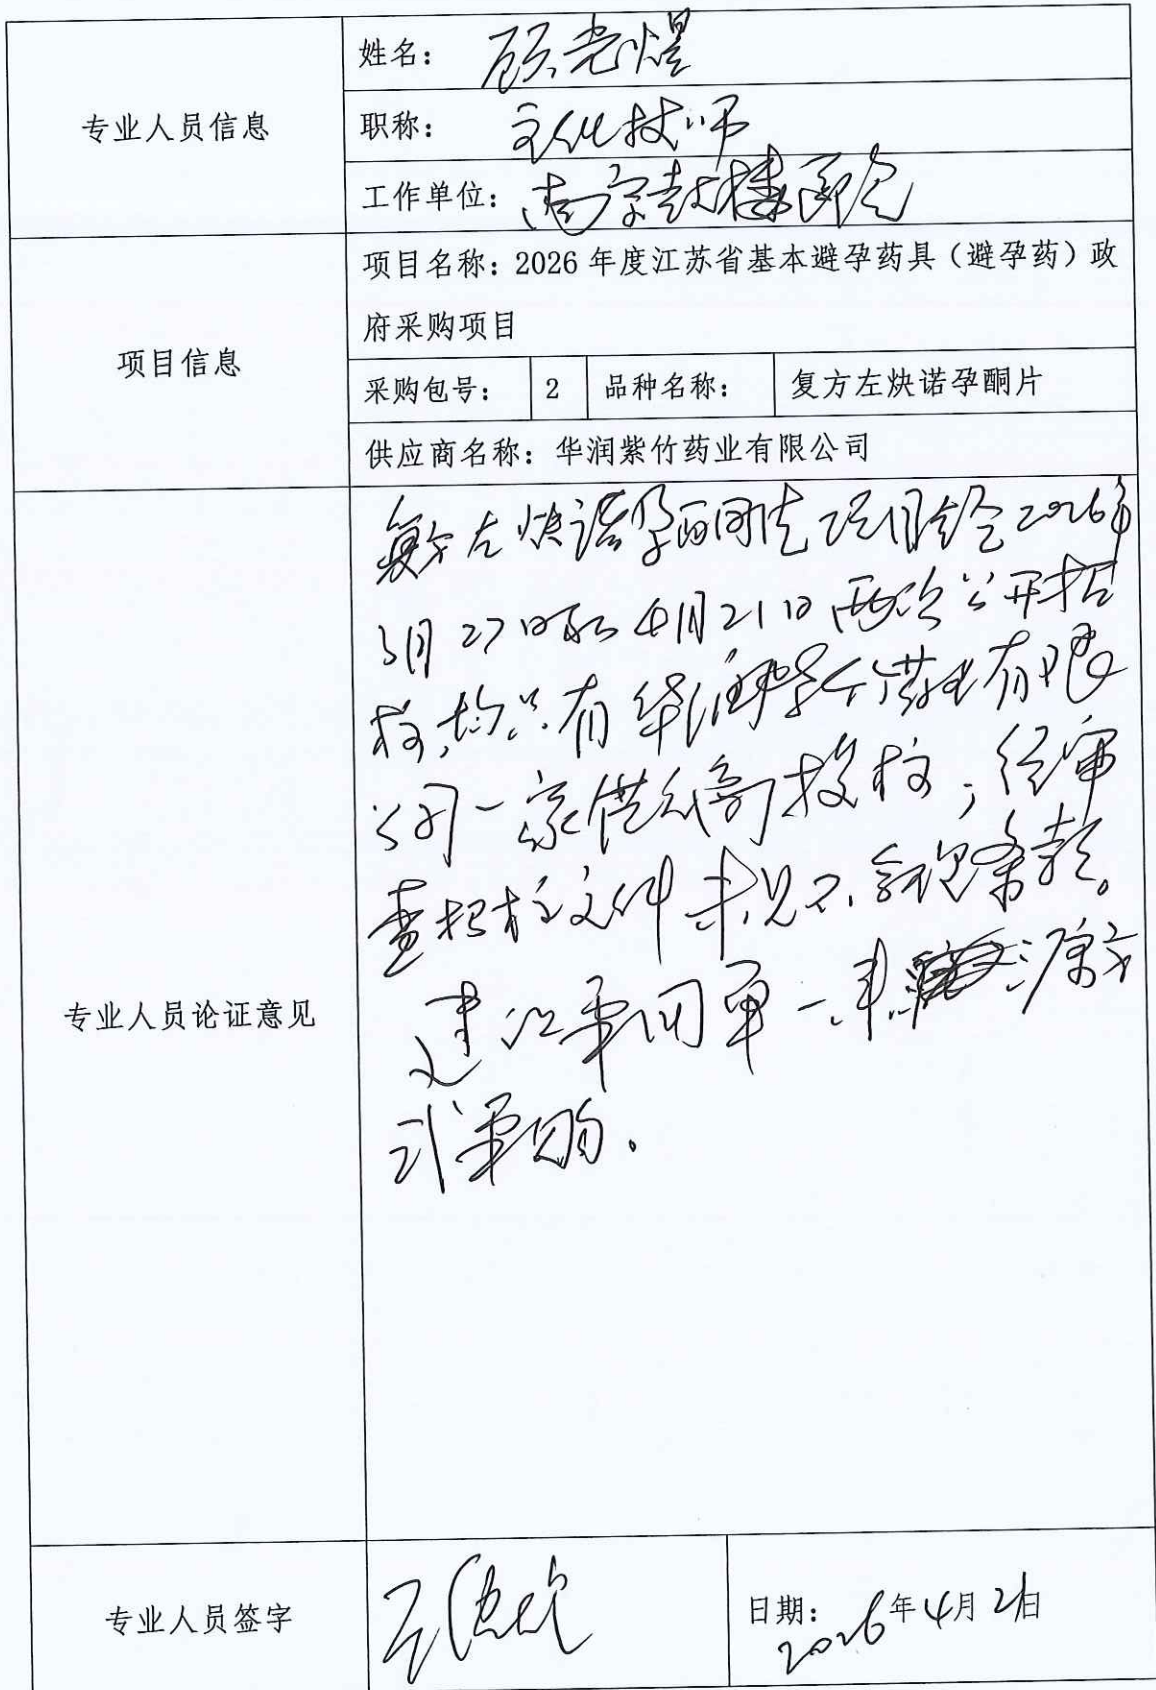 专业人员信息
姓名：顾光煜
职称：主任技师
工作单位：南京鼓楼医院
项目信息
项目名称：2026 年度江苏省基本避孕药具（避孕药）政
府采购项目
采购包号： 2 品种名称： 复方左炔诺孕酮片
供应商名称：华润紫竹药业有限公司
专业人员论证意见
复方左炔诺孕酮片项目经2026年
3月27日和4月21日两次公开招
标，均只有华润紫竹药业有限
公司一家供应商投标，经审
查招标文件未见不合理条款。
建议采用单一来源方
式采购。
专业人员签字
日期：2026年4月21日